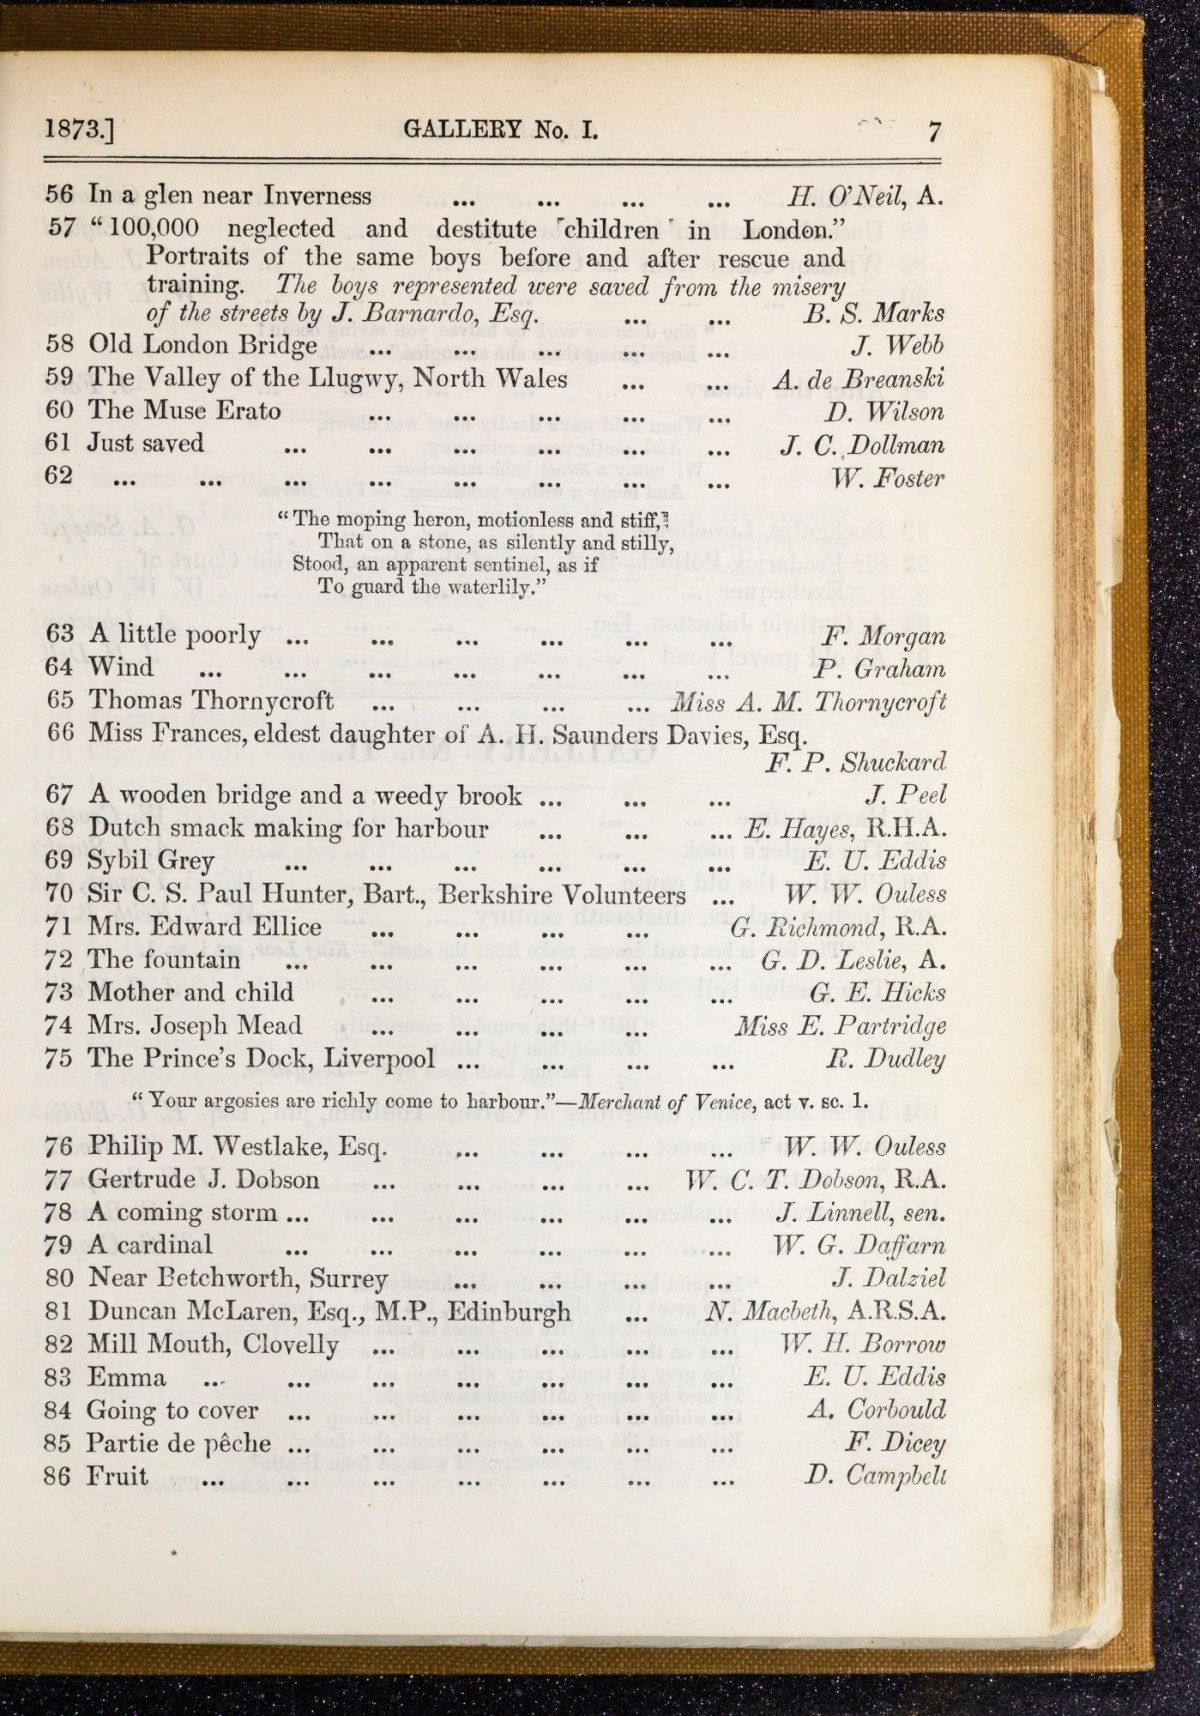 1873.] GALLERY No. I. 7
56 In a glen near Inverness ... ... ... ... H. O'Neil, A.
57 "100,000 neglected and destitute children in London."
Portraits of the same boys before and after rescue and
training. The boys represented were saved from the misery
of the streets by J. Barnardo, Esq. ... ... B. S. Marks
58 Old London Bridge ... ... ... ... ... J. Webb
59 The Valley of the Llugwy, North Wales ... ... A. de Breanski
60 The Muse Erato ... ... ... ... ... D. Wilson
61 Just saved ... ... ... ... ... ... J. C. Dollman
62 ... ... ... ... ... ... ... ... W. Foster
"The moping heron, motionless and stiff,
That on a stone, as silently and stilly,
Stood, an apparent sentinel, as if
To guard the waterlily."
63 A little poorly ... ... ... ... ... ... F. Morgan
64 Wind ... ... ... ... ... ... ... P. Graham
65 Thomas Thornycroft ... ... ... ... Miss A. M. Thornycroft
66 Miss Frances, eldest daughter of A. H. Saunders Davies, Esq.
F. P. Shuckard
67 A wooden bridge and a weedy brook ... ... ... J. Peel
68 Dutch smack making for harbour ... ... ... E. Hayes, R.H.A.
69 Sybil Grey ... ... ... ... ... ... E. U. Eddis
70 Sir C. S. Paul Hunter, Bart., Berkshire Volunteers ... W. W. Ouless
71 Mrs. Edward Ellice ... ... ... ... G. Richmond, R.A.
72 The fountain ... ... ... ... ... ... G. D. Leslie, A.
73 Mother and child ... ... ... ... ... G. E. Hicks
74 Mrs. Joseph Mead ... ... ... Miss E. Partridge
75 The Prince's Dock, Liverpool ... ... ... ... R. Dudley
"Your argosies are richly come to harbour."—Merchant of Venice, act v. sc. 1.
76 Philip M. Westlake, Esq. ... ... ... ... W. W. Ouless
77 Gertrude J. Dobson ... ... ... ... W. C. T. Dobson, R.A.
78 A coming storm ... ... ... ... ... ... J. Linnell, sen.
79 A cardinal ... ... ... ... ... ... W. G. Daffarn
80 Near Betchworth, Surrey ... ... ... ... J. Dalziel
81 Duncan McLaren, Esq., M.P., Edinburgh ... N. Macbeth, A.R.S.A.
82 Mill Mouth, Clovelly ... ... ... ... ... W. H. Borrow
83 Emma ... ... ... ... ... ... ... E. U. Eddis
84 Going to cover ... ... ... ... ... ... A. Corbould
85 Partie de pêche ... ... ... ... ... ... F. Dicey
86 Fruit ... ... ... ... ... ... ... D. Campbell